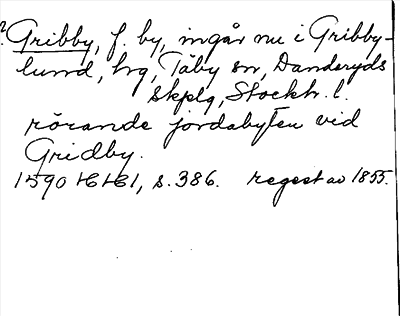 ? Gribby, f. by, ingår nu i Gribby-
lund, hrg, Täby sn, Danderyds
skplg, Stockh. l.
rörande jordabyten vid
Gridby.
1590 16/1, s. 386. regest av 1855.